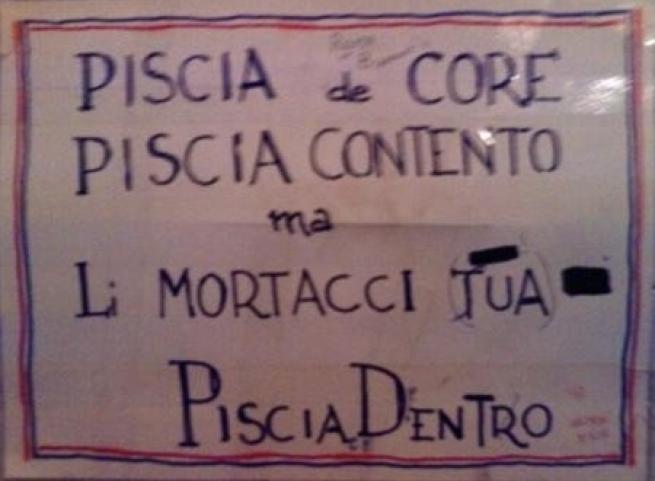 PISCIA de CORE
PISCIA CONTENTO
ma
Li MORTACCI (TUA)
PISCIA DENTRO